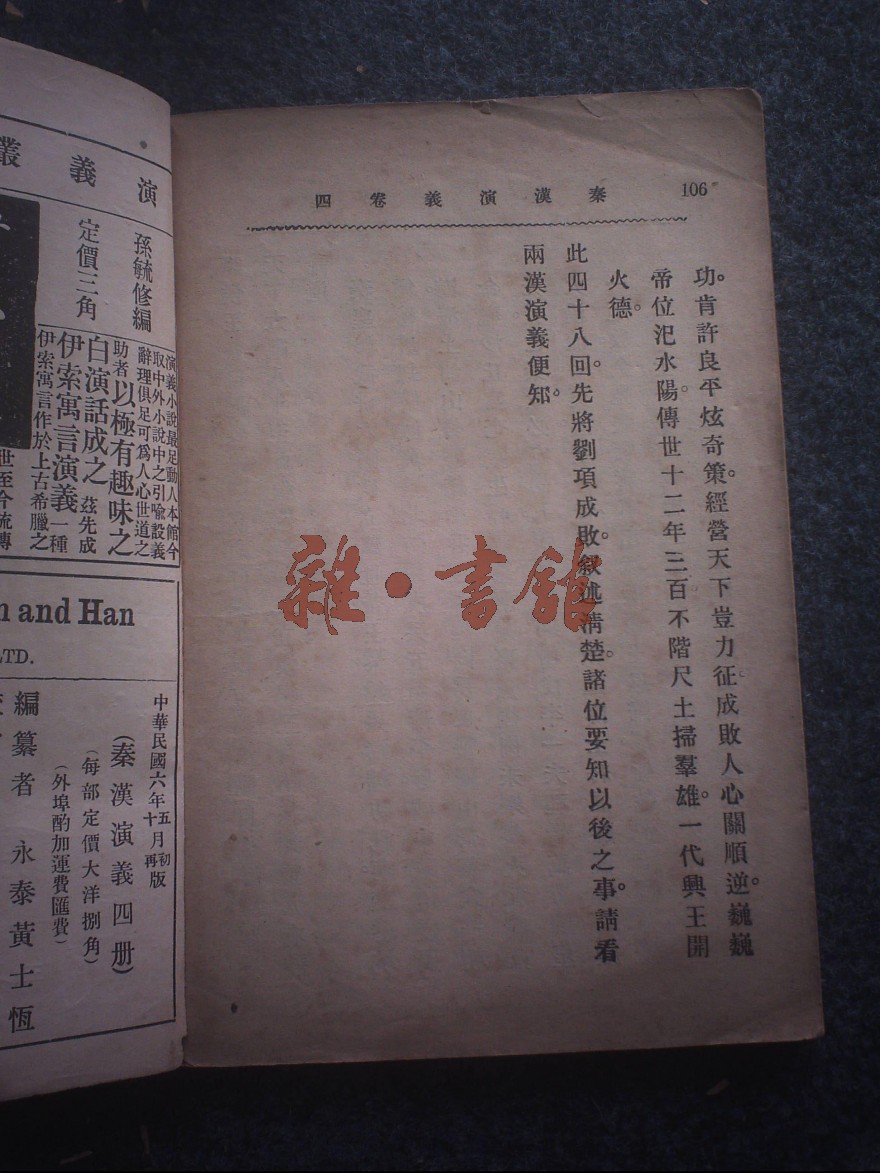 秦漢演義卷四
106
功。肯許良平炫奇策。經營天下豈力征。成敗人心關順逆。巍巍
帝位汜水陽。傳世十二年三百。不階尺土掃羣雄。一代興王開
火德。
此四十八回。先將劉項成敗。敘述清楚。諸位要知以後之事。請看
兩漢演義便知。
雜·書館
演義叢
孫毓修編
定價三角
演義小說最足動人本館今
取中外小說中之引喻設義
辭理俱足可爲人心世道之
助者以極有趣味之
白演話成之茲先成
伊索寓言演義一種
伊索寓言作於上古希臘之
世至今流傳
n and Han
LTD.
中華民國六年五月初版
十月再版
(秦漢演義四册)
(每部定價大洋捌角)
(外埠酌加運費匯費)
編纂者 永泰黃士恆